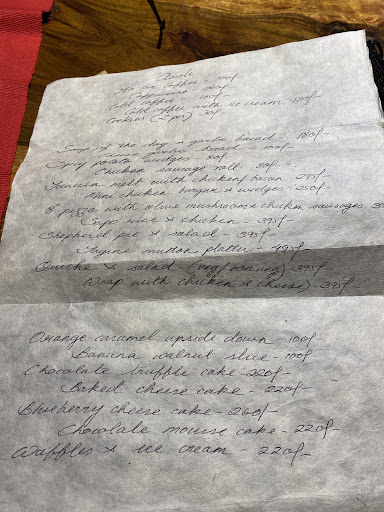 Tea or Coffee - 
Cappuccino - 
Cold coffee - 
Cold coffee with ice cream -
Cookies (2 pcs)
Soup of the day & garlic bread - 180/-
Spicy potato wedges - 80/-
Chicken sausage roll - 80/-
melt with chicken/bacon - 295/-
Mini chicken burger & wedges - 250/-
8 pizza with olive mushroom & chicken sausages
rice & chicken - 395/-
Shepherd pie & salad - 395/-
Tagine mutton platter - 495/-
Quiche & salad (veg/nonveg) 395/-
Wrap with chicken & cheese) - 395/-
Orange caramel upside down - 100/-
Banana walnut slice - 100/-
Chocolate truffle cake - 220/-
Baked cheese cake - 220/-
Blueberry cheese cake - 260/-
Chocolate mousse cake - 220/-
Waffles & ice cream - 220/-